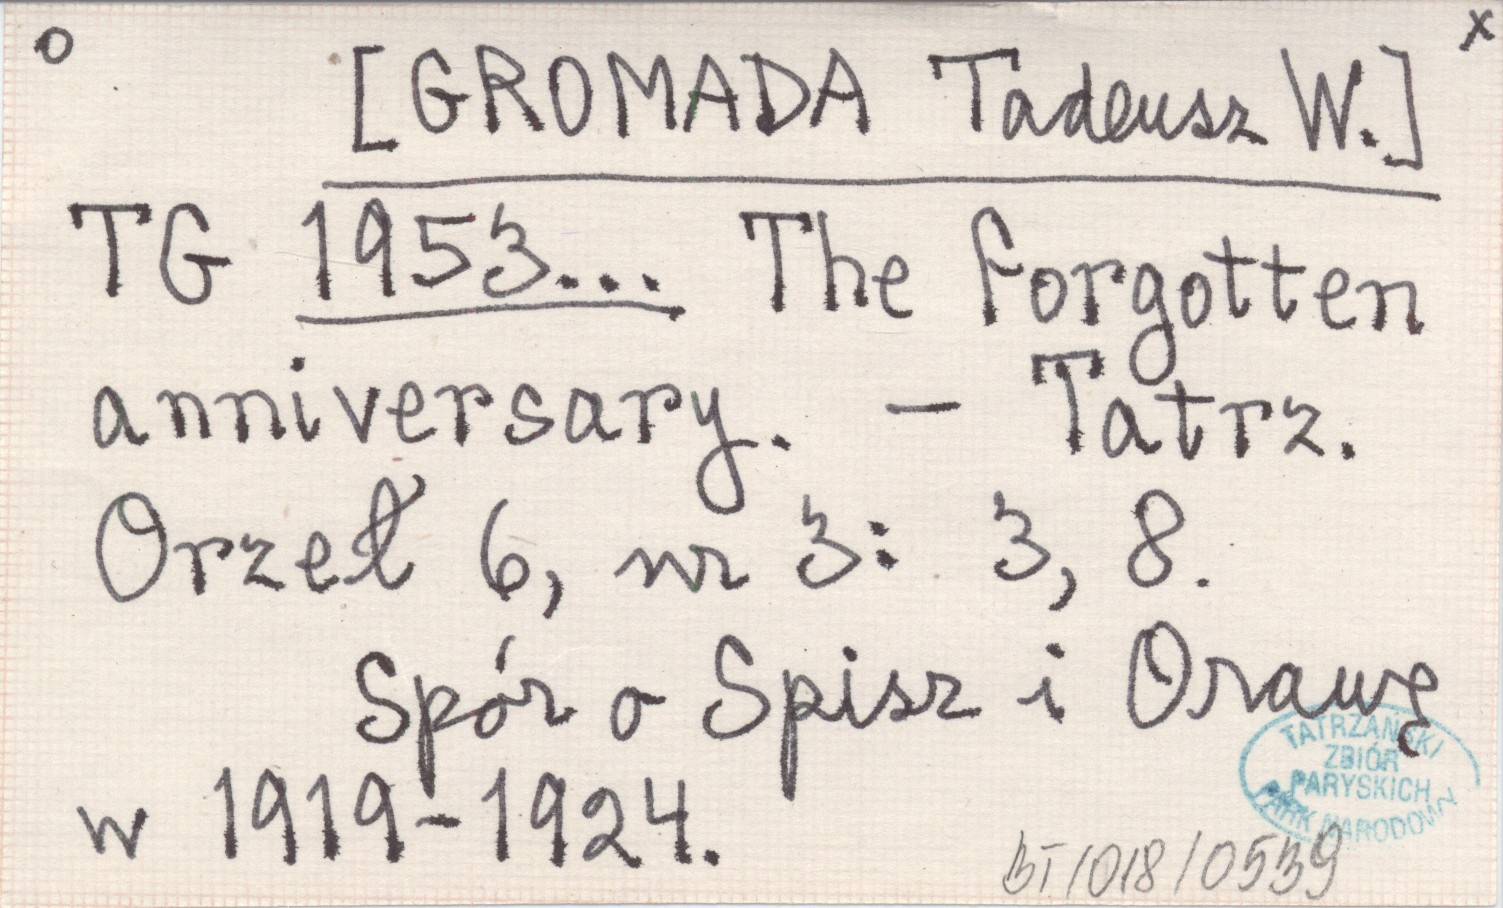 o x
[GROMADA Tadeusz W.]
TG 1953... The forgotten
anniversary. - Tatrz.
Orzeł 6, nr 3: 3, 8.
Spór o Spisz i Orawę
w 1919-1924.
TATRZAŃSKI
ZBIÓR
PARYSKICH
PARK NARODOWY
BT/018/0539